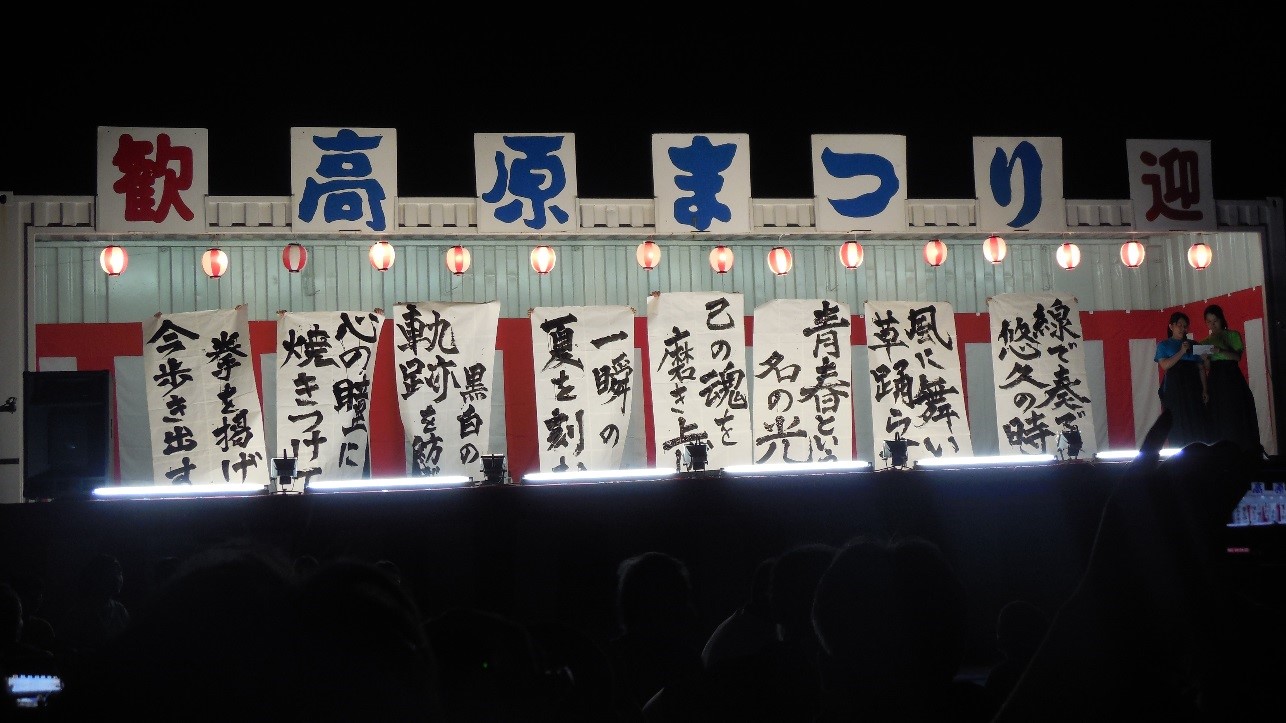 歓高原まつり迎
線で奏で
悠久の時
風に舞い
草踊ら
青春とい
名の光
己の魂を
磨き上
一瞬の
夏を刻
黒白の
軌跡を
心の
に
焼きつけて
拳を掲げ
今歩き出す